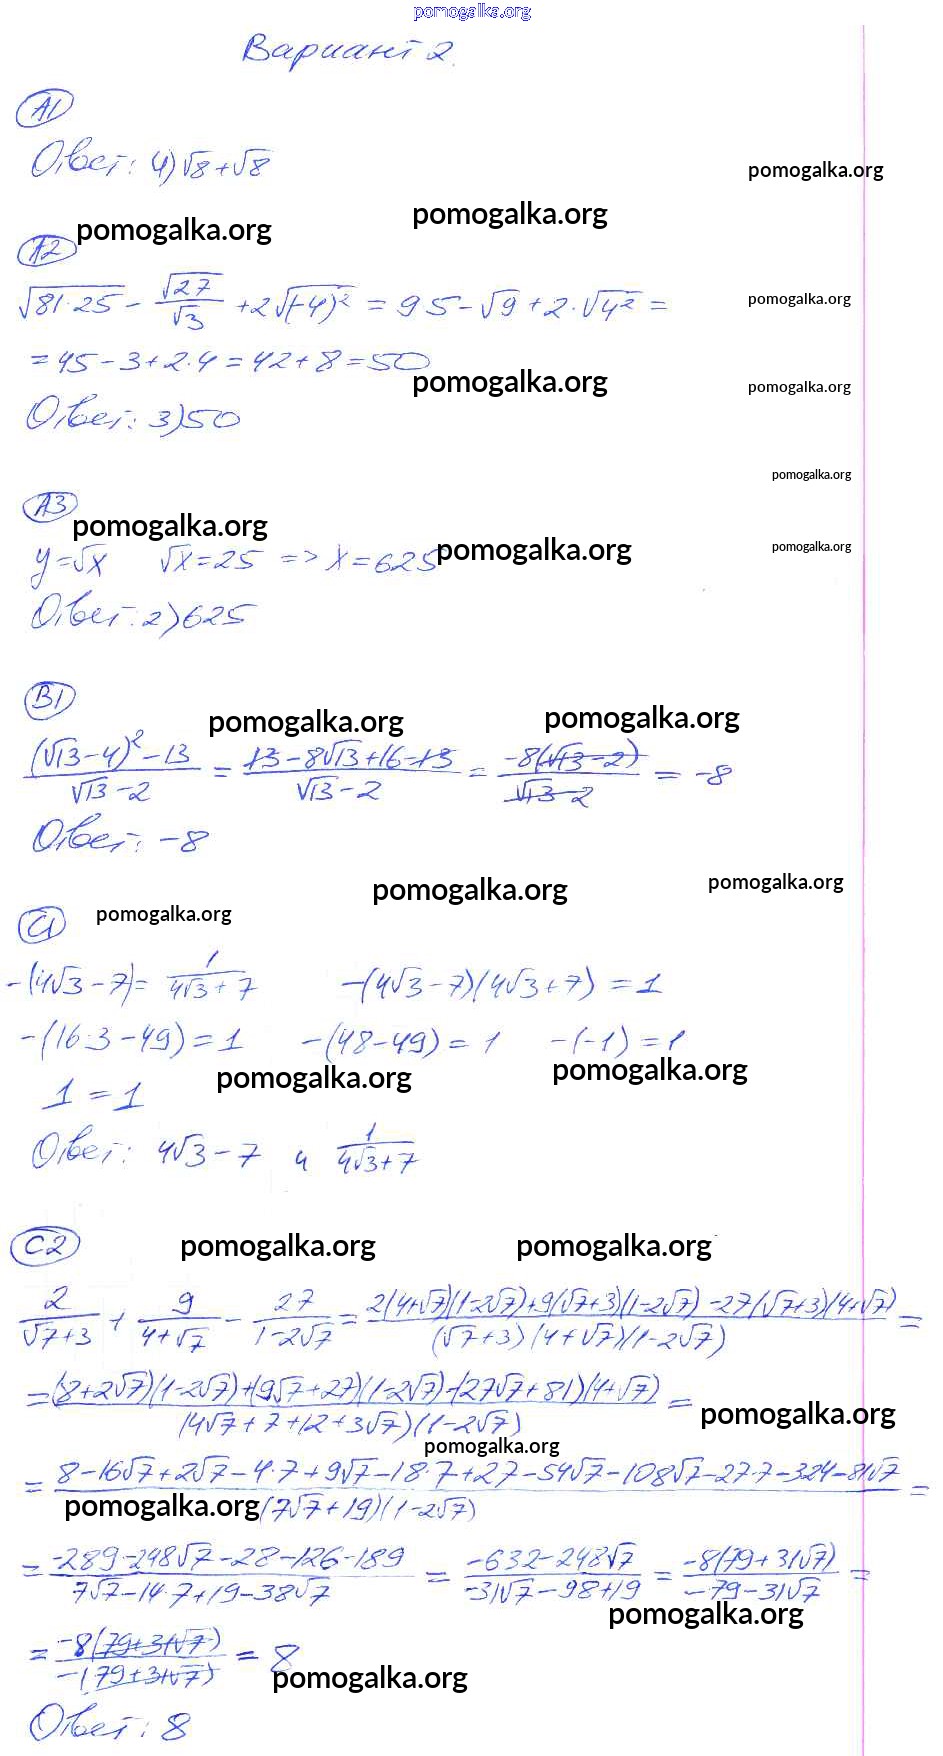 pomogalka.org
Вариант 2.
А1
Ответ: 4) √8 + √8
pomogalka.org
pomogalka.org
pomogalka.org
А2
√(81·25) − √27/√3 + 2√(−4)² = 9 5 − √9 + 2·√4² =
pomogalka.org
= 45 − 3 + 2·4 = 42 + 8 = 50
pomogalka.org
pomogalka.org
Ответ: 3) 50
pomogalka.org
А3
pomogalka.org
pomogalka.org
pomogalka.org
y = √x √x = 25 => x = 625
Ответ: 2) 625
В1
pomogalka.org
pomogalka.org
((√13 − 4)² − 13)/(√13 − 2) = (13 − 8√13 + 16 − 13)/(√13 − 2) = −8(√13 − 2)/(√13 − 2) = −8
Ответ: −8
pomogalka.org
pomogalka.org
С1
pomogalka.org
−(4√3 − 7) = 1/(4√3 + 7) −(4√3 − 7)(4√3 + 7) = 1
−(16·3 − 49) = 1 −(48 − 49) = 1 −(−1) = 1
1 = 1
pomogalka.org
pomogalka.org
Ответ: 4√3 − 7 и 1/(4√3 + 7)
С2
pomogalka.org
pomogalka.org
2/(√7 + 3) + 9/(4 + √7) − 27/(1 − 2√7) = (2(4 + √7)(1 − 2√7) + 9(√7 + 3)(1 − 2√7) − 27(√7 + 3)(4 + √7))/((√7 + 3)(4 + √7)(1 − 2√7)) =
= ((8 + 2√7)(1 − 2√7) + (9√7 + 27)(1 − 2√7) − (27√7 + 81)(4 + √7))/((4√7 + 7 + 12 + 3√7)(1 − 2√7)) =
pomogalka.org
pomogalka.org
= (8 − 16√7 + 2√7 − 4·7 + 9√7 − 18·7 + 27 − 54√7 − 108√7 − 27·7 − 324 − 81√7)/((7√7 + 19)(1 − 2√7)) =
pomogalka.org
= (−289 − 248√7 − 28 − 126 − 189)/(7√7 − 14·7 + 19 − 38√7) = (−632 − 248√7)/(−31√7 − 98 + 19) = −8(79 + 31√7)/(−79 − 31√7) =
pomogalka.org
= −8(79 + 31√7)/−(79 + 31√7) = 8
pomogalka.org
Ответ: 8